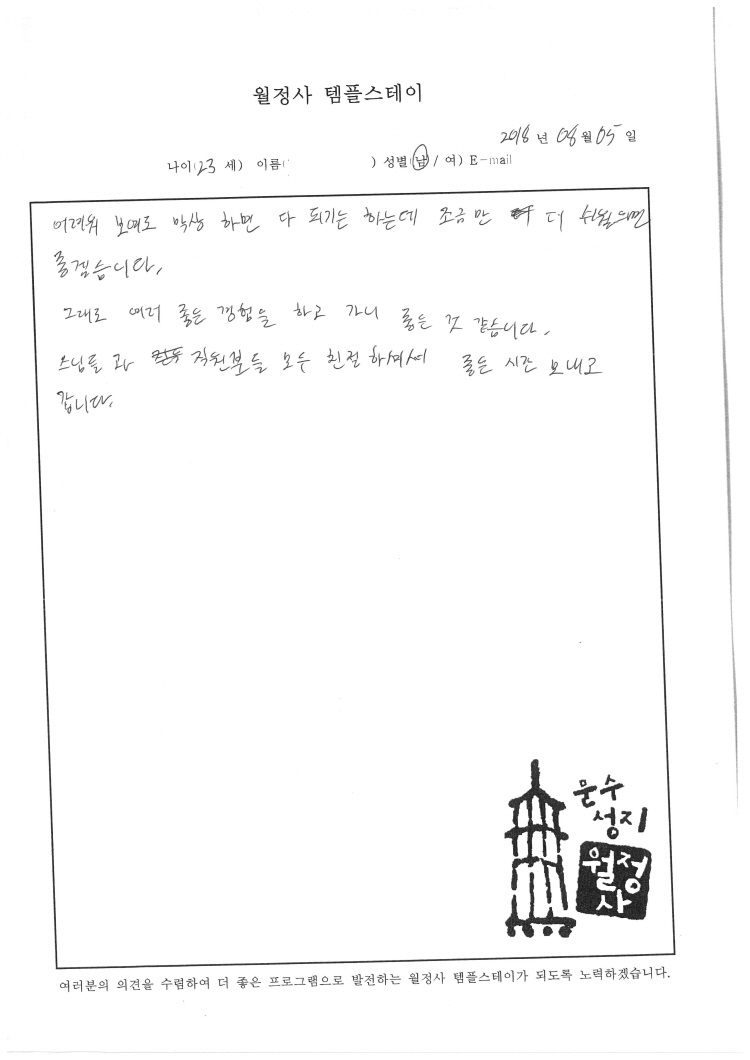 월정사 템플스테이
2018 년 08 월 05 일
나이(23 세) 이름( ) 성별(남/여) E-mail
어려워 보여도 막상 하면 다 되기는 하는데 조금만 더 쉬웠으면
좋겠습니다.
그래도 여러 좋은 경험을 하고 가니 좋은 것 같습니다.
스님들과 직원분들 모두 친절하셔서 좋은 시간 보내고
갑니다.
문수
성지
월정
사
여러분의 의견을 수렴하여 더 좋은 프로그램으로 발전하는 월정사 템플스테이가 되도록 노력하겠습니다.